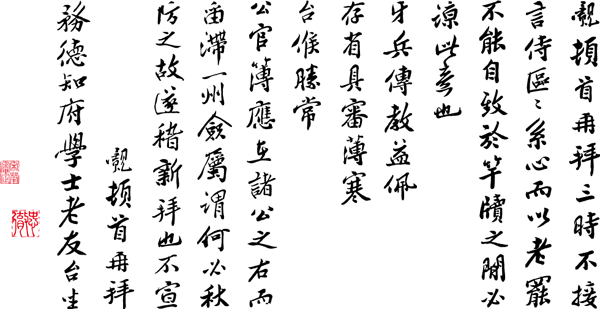 覿頓首再拜三時不接
言侍區〻系心而以老罷
不能自致於竿牘之閒必
諒此意也
牙兵傳教益佩
存省具審薄寒
台候勝常
公官簿應在諸公之右而
留滯一州僉屬謂何必秋
防之故遂稽新拜也不宣
覿頓首再拜
務德知府學士老友台坐